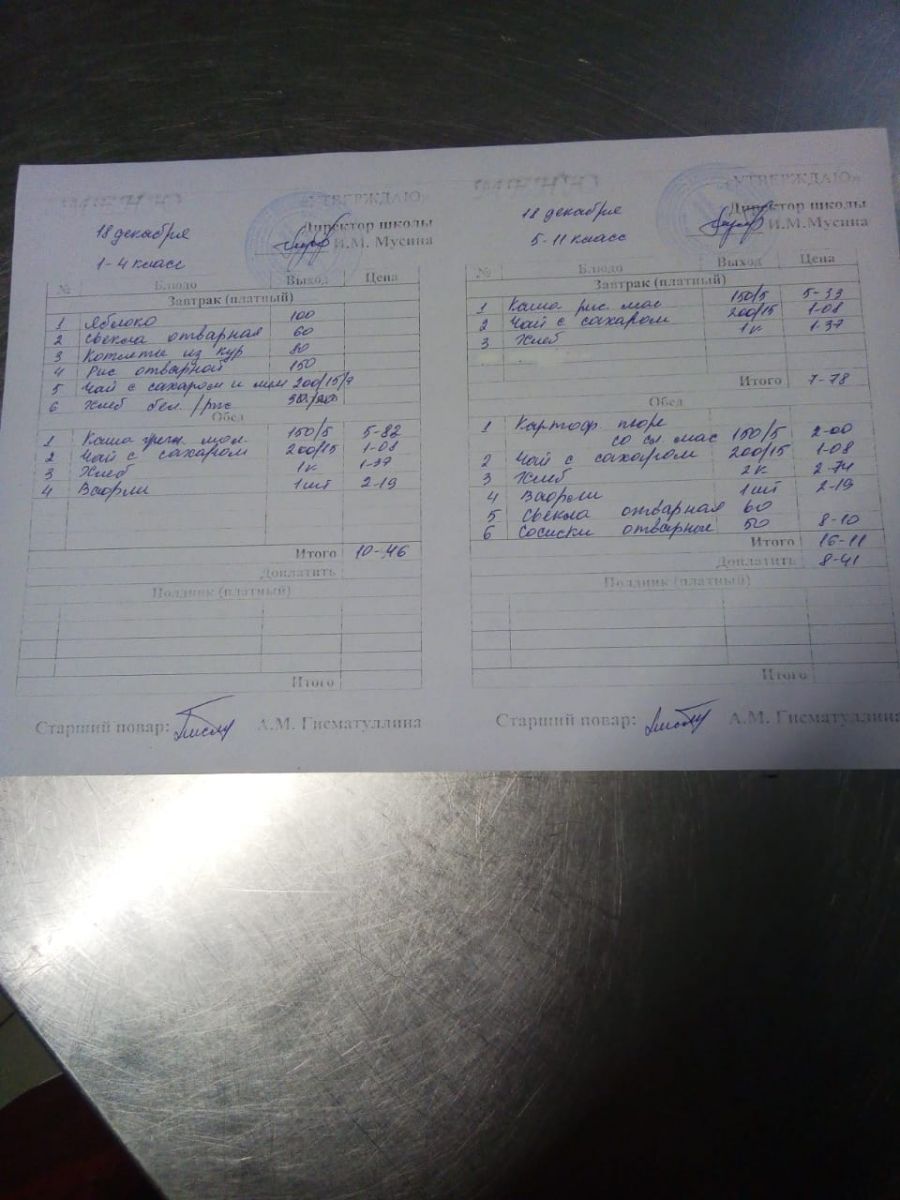 «УТВЕРЖДАЮ»
Директор школы
И.М. Мусина
18 декабря
1-4 класс
№ Блюдо Выход Цена
Завтрак (платный)
1 Яблоко 100
2 Свекла отварная 60
3 Котлеты из кур 80
4 Рис отварной 150
5 Чай с сахаром и лим 200/15/7
6 Хлеб бел. /рж
Обед
1 Каша греч. мол. 150/5 5-82
2 Чай с сахаром 200/15 1-08
3 Хлеб 1к 1-37
4 Вафли 1шт 2-19
Итого 10-46
Доплатить
Полдник (платный)
Итого
Старший повар: А.М. Гисматуллина
«УТВЕРЖДАЮ»
Директор школы
И.М.Мусина
18 декабря
5-11 класс
№ Блюдо Выход Цена
Завтрак (платный)
1 Каша рис. мол 150/5 5-33
2 Чай с сахаром 200/15 1-08
3 Хлеб 1к 1-37
Итого 7-78
Обед
1 Картоф. пюре
со сл. мас 150/5 2-00
2 Чай с сахаром 200/15 1-08
3 Хлеб 2к 2-74
4 Вафли 1шт 2-19
5 Свекла отварная 60
6 Сосиски отварные 50 8-10
Итого 16-11
Доплатить 8-41
Полдник (платный)
Итого
Старший повар: А.М. Гисматуллина